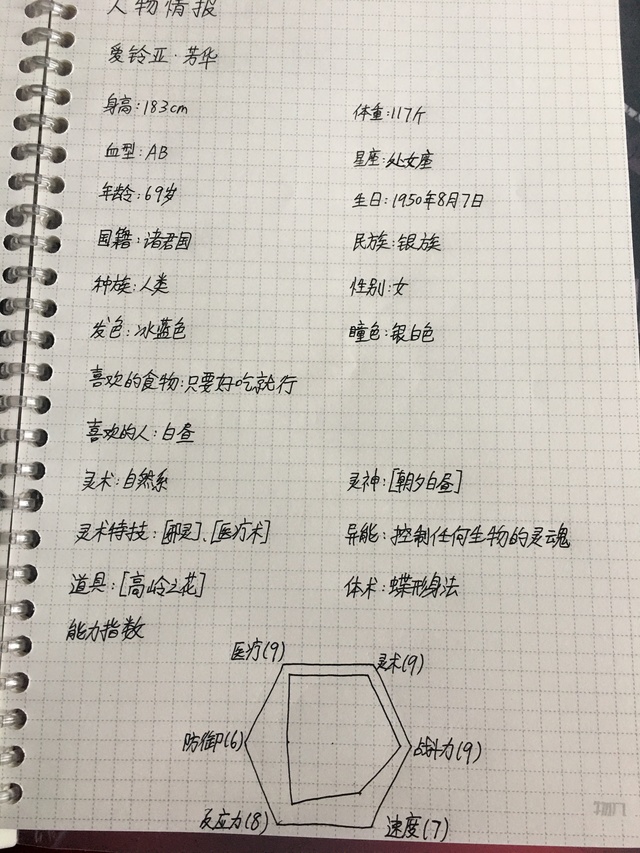 人物情报
爱铃亚·芳华
身高:183cm 体重:117斤
血型:AB 星座:处女座
年龄:69岁 生日:1950年8月7日
国籍:诸君国 民族:银族
种族:人类 性别:女
发色:冰蓝色 瞳色:银白色
喜欢的食物:只要好吃就行
喜欢的人:白昼
灵术:自然系 灵神:[朝夕白昼]
灵术特技:[御灵]、[医疗术] 异能:控制任何生物的灵魂
道具:[高岭之花] 体术:蝶形身法
能力指数
医疗(9) 灵术(9)
防御(6) 战斗力(9)
反应力(8) 速度(7)